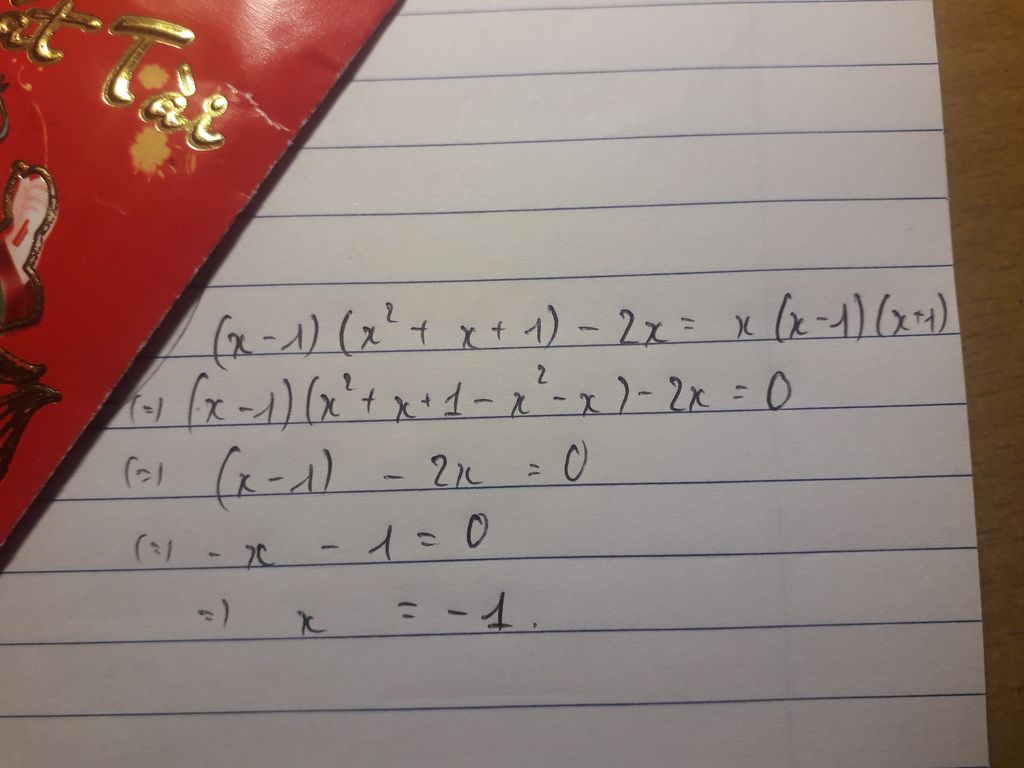 át Tài
(x-1)(x² + x + 1) - 2x = x (x-1)(x+1)
(=) (x-1)(x² + x + 1 - x² - x) - 2x = 0
(=) (x-1) - 2x = 0
(=) - x - 1 = 0
=) x = -1.